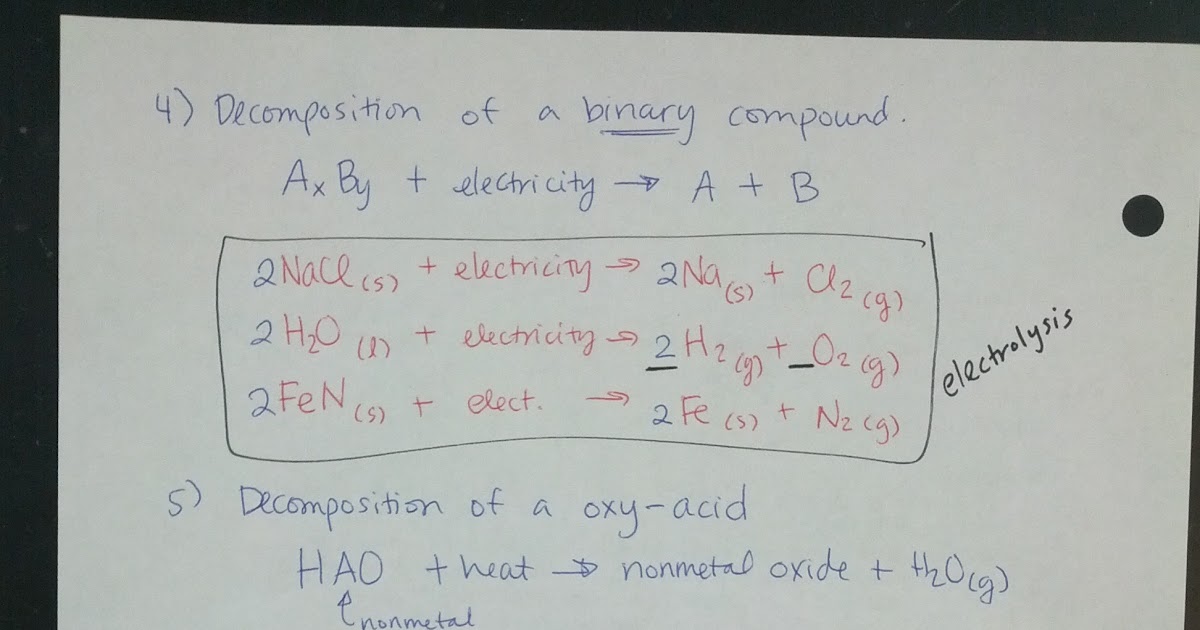 4) Decomposition of a binary compound.
AxBy + electricity → A + B
2NaCl (s) + electricity → 2Na (s) + Cl2 (g)
2H2O (l) + electricity → 2H2 (g) + _O2 (g)
2FeN (s) + elect. → 2Fe (s) + N2 (g)
electrolysis
5) Decomposition of a oxy-acid
HAO + heat → nonmetal oxide + H2O(g)
nonmetal